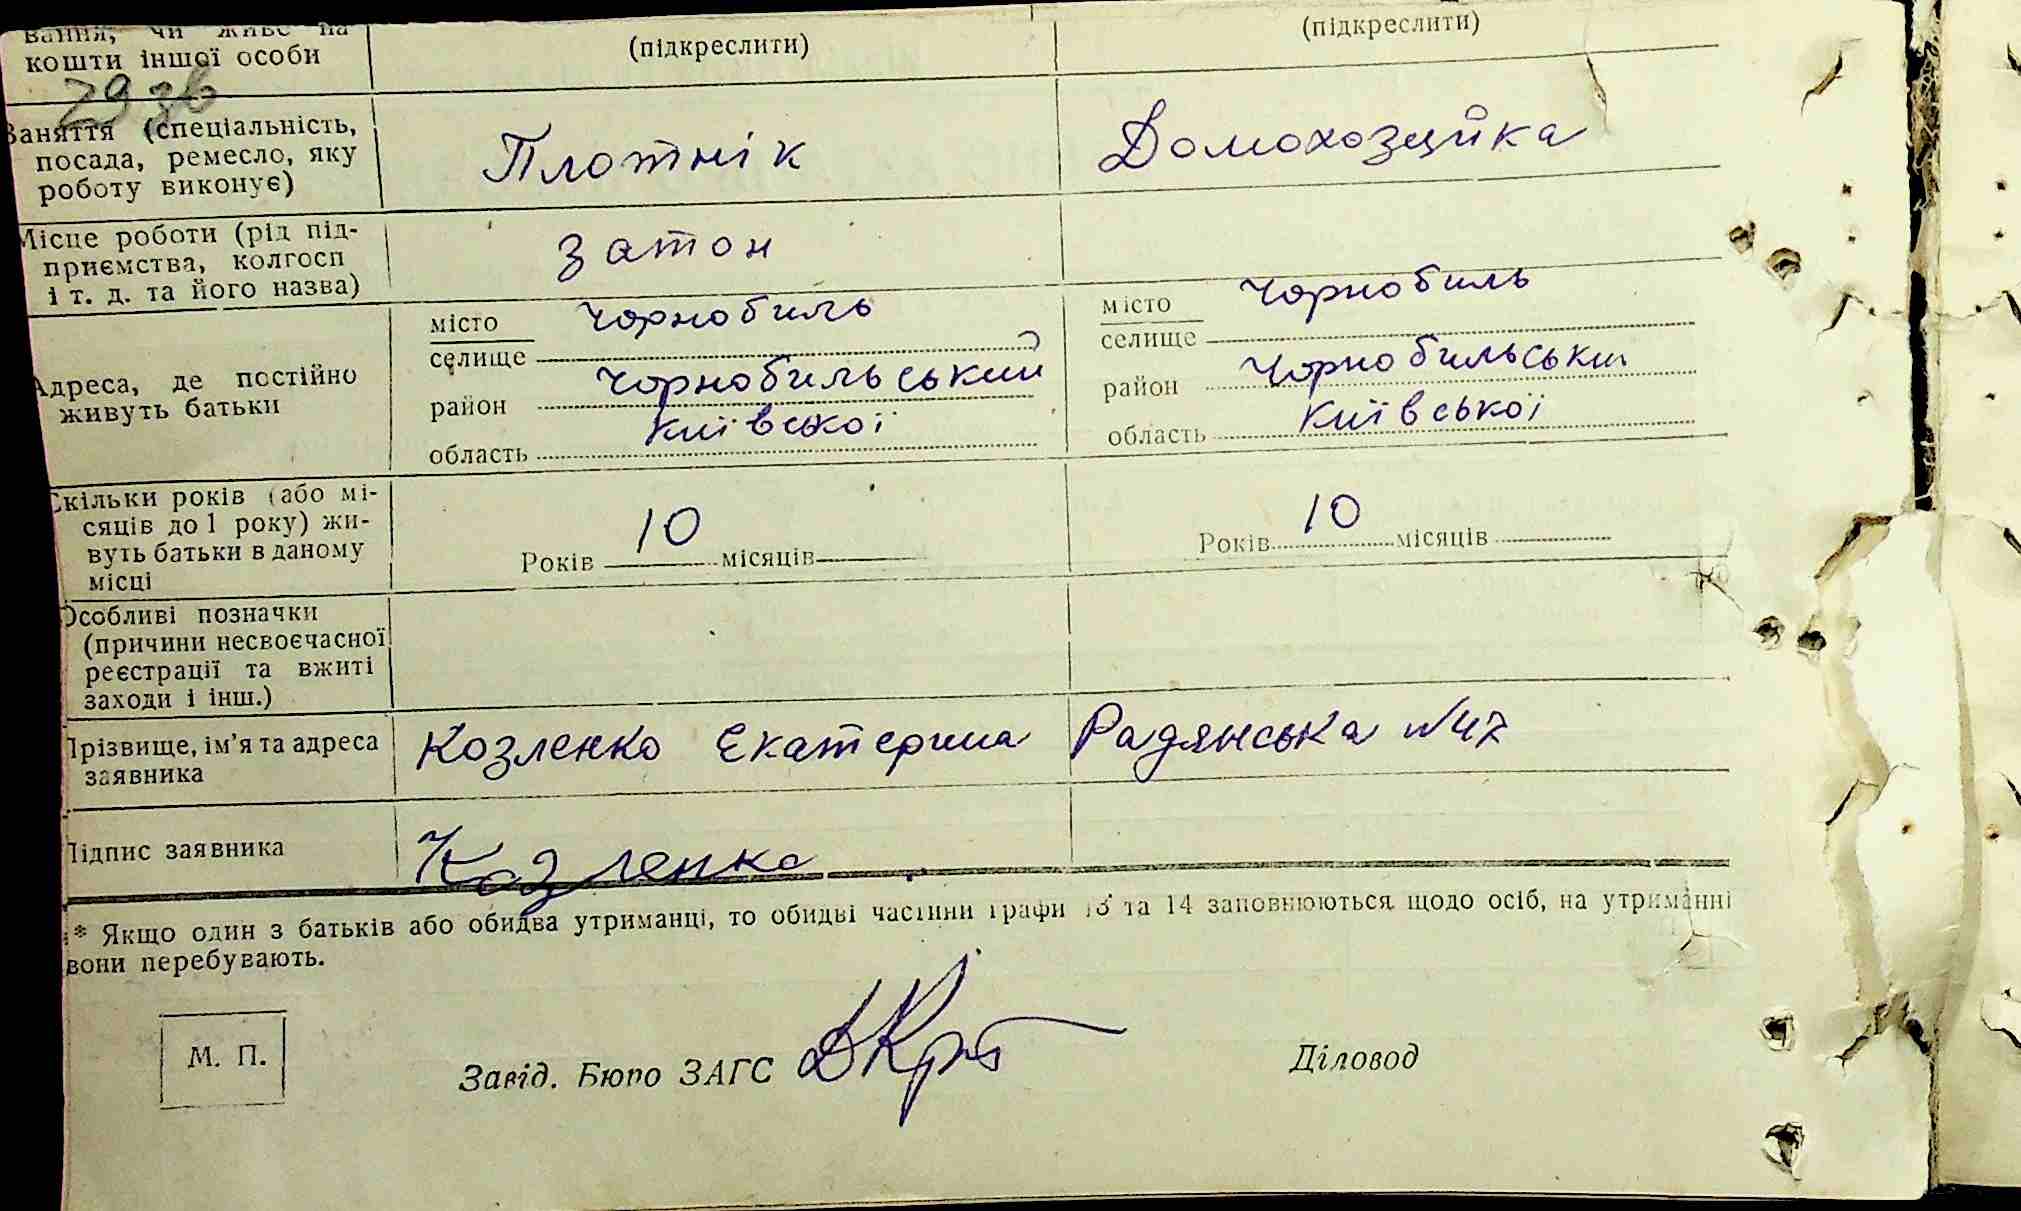 вання, чи живе на
кошти іншої особи
(підкреслити)
(підкреслити)
29 зв
Заняття (спеціальність,
посада, ремесло, яку
роботу виконує)
Плотнік
Домохозяйка
Місце роботи (рід під-
приємства, колгосп
і т. д. та його назва)
Затон
Адреса, де постійно
живуть батьки
місто Чорнобиль
селище
район Чорнобильський
область Київської
місто Чорнобиль
селище
район Чорнобильський
область Київської
Скільки років (або мі-
сяців до 1 року) жи-
вуть батьки в даному
місці
Років 10 місяців
Років 10 місяців
Особливі позначки
(причини несвоєчасної
реєстрації та вжиті
заходи і інш.)
Прізвище, ім’я та адреса
заявника
Козленко Екатерина Радянська №47
Підпис заявника
Козленко
* Якщо один з батьків або обидва утриманці, то обидві частини графи 13 та 14 заповнюються щодо осіб, на утриманні
вони перебувають.
М. П.
Завід. Бюро ЗАГС
Діловод